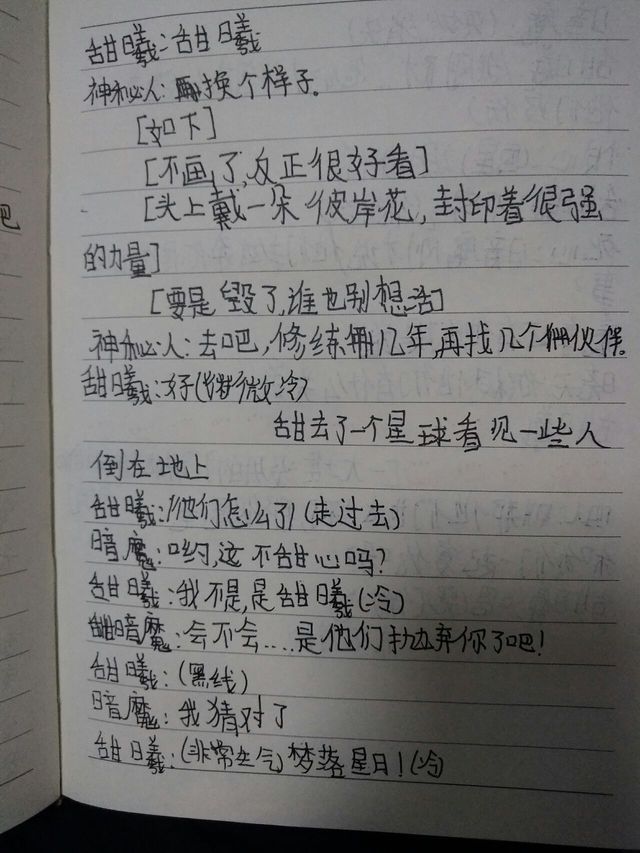 甜曦:甜曦
神秘人:再换个样子。
[如下]
[不画了,反正很好看]
[头上戴一朵彼岸花,封印着很强
吧
的力量]
[要是毁了,谁也别想活]
神秘人:去吧,修练几年,再找几个伙伴。
甜曦:好(微冷)
甜去了一个星球看见一些人
倒在地上
甜曦:他们怎么了(走过去)
暗魔:哟,这不甜心吗?
甜曦:我不是,是甜曦(冷)
暗魔:会不会....是他们抛弃你了吧!
甜曦:(黑线)
暗魔:我猜对了
甜曦:(非常生气)梦落星日!(冷)